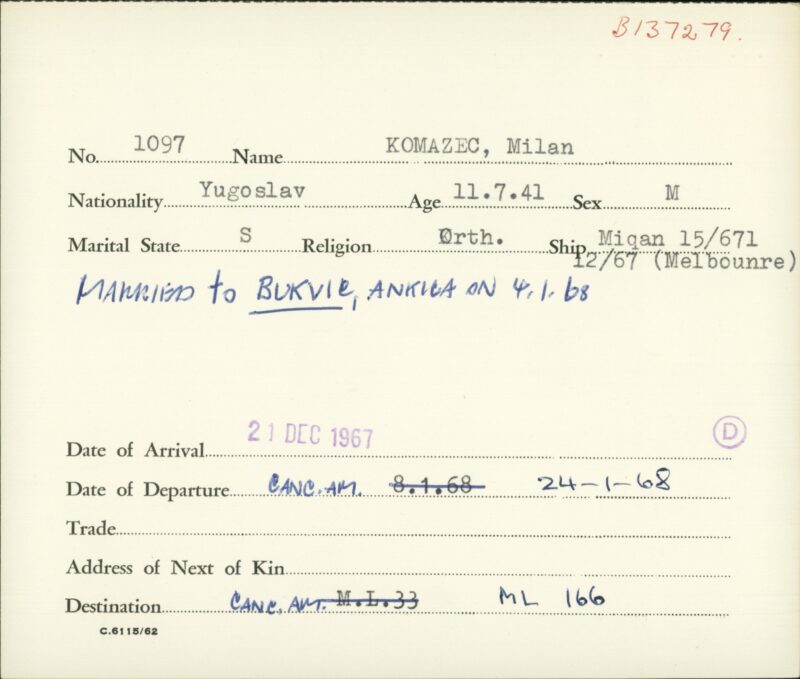 B137279.
No. 1097 Name KOMAZEC, Milan
Nationality Yugoslav Age 11.7.41 Sex M
Marital State S Religion Orth. Ship Miqan 15/671
12/67 (Melbounre)
MARRIED to BUKVIC, ANKICA ON 4.1.68
Date of Arrival 21 DEC 1967 D
Date of Departure CANC. AM. 8.1.68 24-1-68
Trade
Address of Next of Kin
Destination CANC. AM. M.L.33 ML 166
C.6115/62